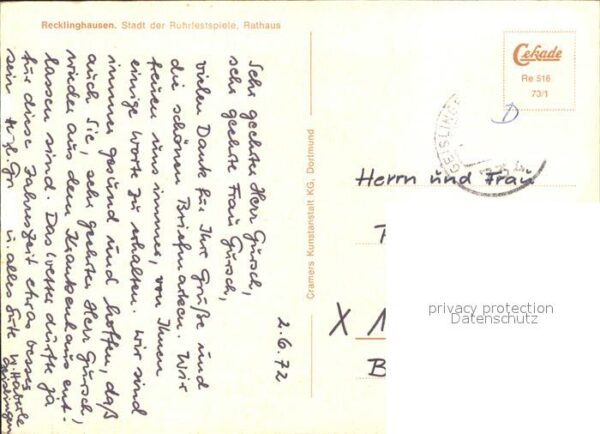 Recklinghausen. Stadt der Ruhrfestspiele, Rathaus
2.6.72
Sehr geehrter Herr Gursch,
sehr geehrte Frau Gursch,
vielen Dank für Ihr Grüße und
die schönen Briefmarken. Wir
freuen uns immer, von Ihnen
einige Worte zu erhalten. Wir sind
immer gesund und hoffen, daß
auch Sie, sehr geehrter Herr Gursch,
wieder aus dem Krankenhaus ent-
lassen sind. Das Wetter dürfte ja
für diese Jahreszeit etwas besser
sein. H. zl. Gr. u. alles Gute W. Häberle
Cramers Kunstanstalt KG, Dortmund
Cekade
Re 516
73/1
D
GEISLINGEN
Herrn und Frau
X 1
B
privacy protection
Datenschutz